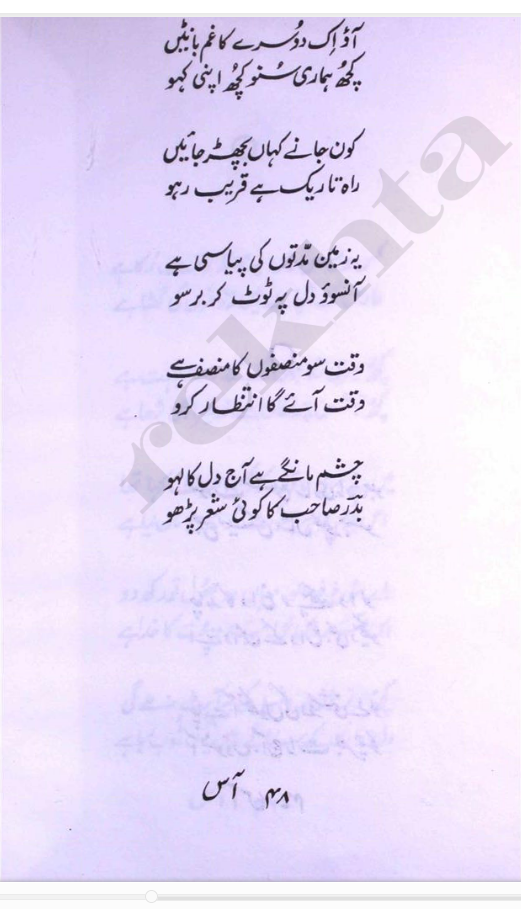 آؤ اِک دوسرے کا غم بانٹیں
کچھ ہماری سُنو کچھ اپنی کہو
کون جانے کہاں بچھڑ جائیں
راہ تاریک ہے قریب رہو
یہ زمین مدّتوں کی پیاسی ہے
آنسوؤ دل پہ ٹوٹ کر برسو
وقت سو منصفوں کا منصف ہے
وقت آئے گا انتظار کرو
چشم مانگے ہے آج دل کا لہو
بدرؔ صاحب کا کوئی شعر پڑھو
rekhta
۴۸ آس